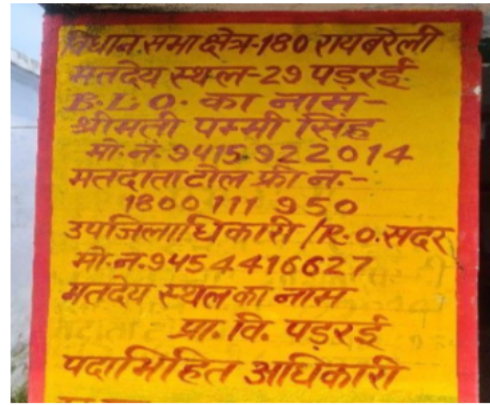 विधान सभा क्षेत्र-180 रायबरेली
मतदेय स्थल-29 पड़रई
B.L.O. का नाम-
श्रीमती पम्मी सिंह
मो.नं.9415922014
मतदाता टोल फ्री न.-
1800 111 950
उपजिलाधिकारी/R.O.सदर
मो.न.9454416627
मतदेय स्थल का नाम
प्रा. वि. पड़रई
पदाभिहित अधिकारी